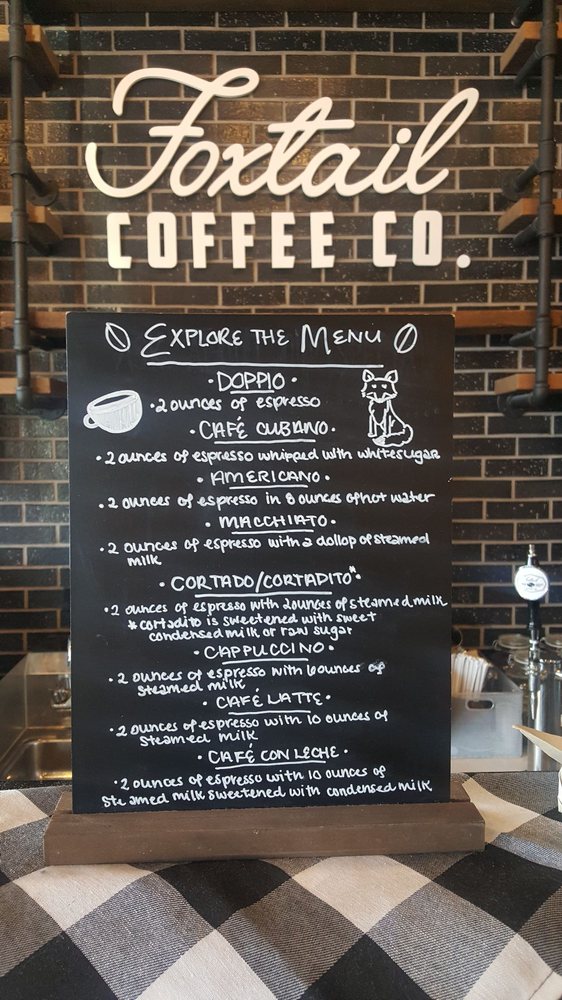 Foxtail
COFFEE CO.
EXPLORE THE MENU
• DOPPIO •
• 2 ounces of espresso
• CAFÉ CUBANO •
• 2 ounces of espresso whipped with white sugar
• AMERICANO •
• 2 ounces of espresso in 8 ounces of hot water
• MACCHIATO •
• 2 ounces of espresso with a dollop of steamed
milk
• CORTADO/CORTADITO* •
• 2 ounces of espresso with 2 ounces of steamed milk
* cortadito is sweetened with sweet
condensed milk or raw sugar
• CAPPUCCINO •
• 2 ounces of espresso with 6 ounces of
steamed milk
• CAFÉ LATTE •
• 2 ounces of espresso with 10 ounces of
steamed milk
• CAFÉ CON LECHE •
• 2 ounces of espresso with 10 ounces of
steamed milk sweetened with condensed milk